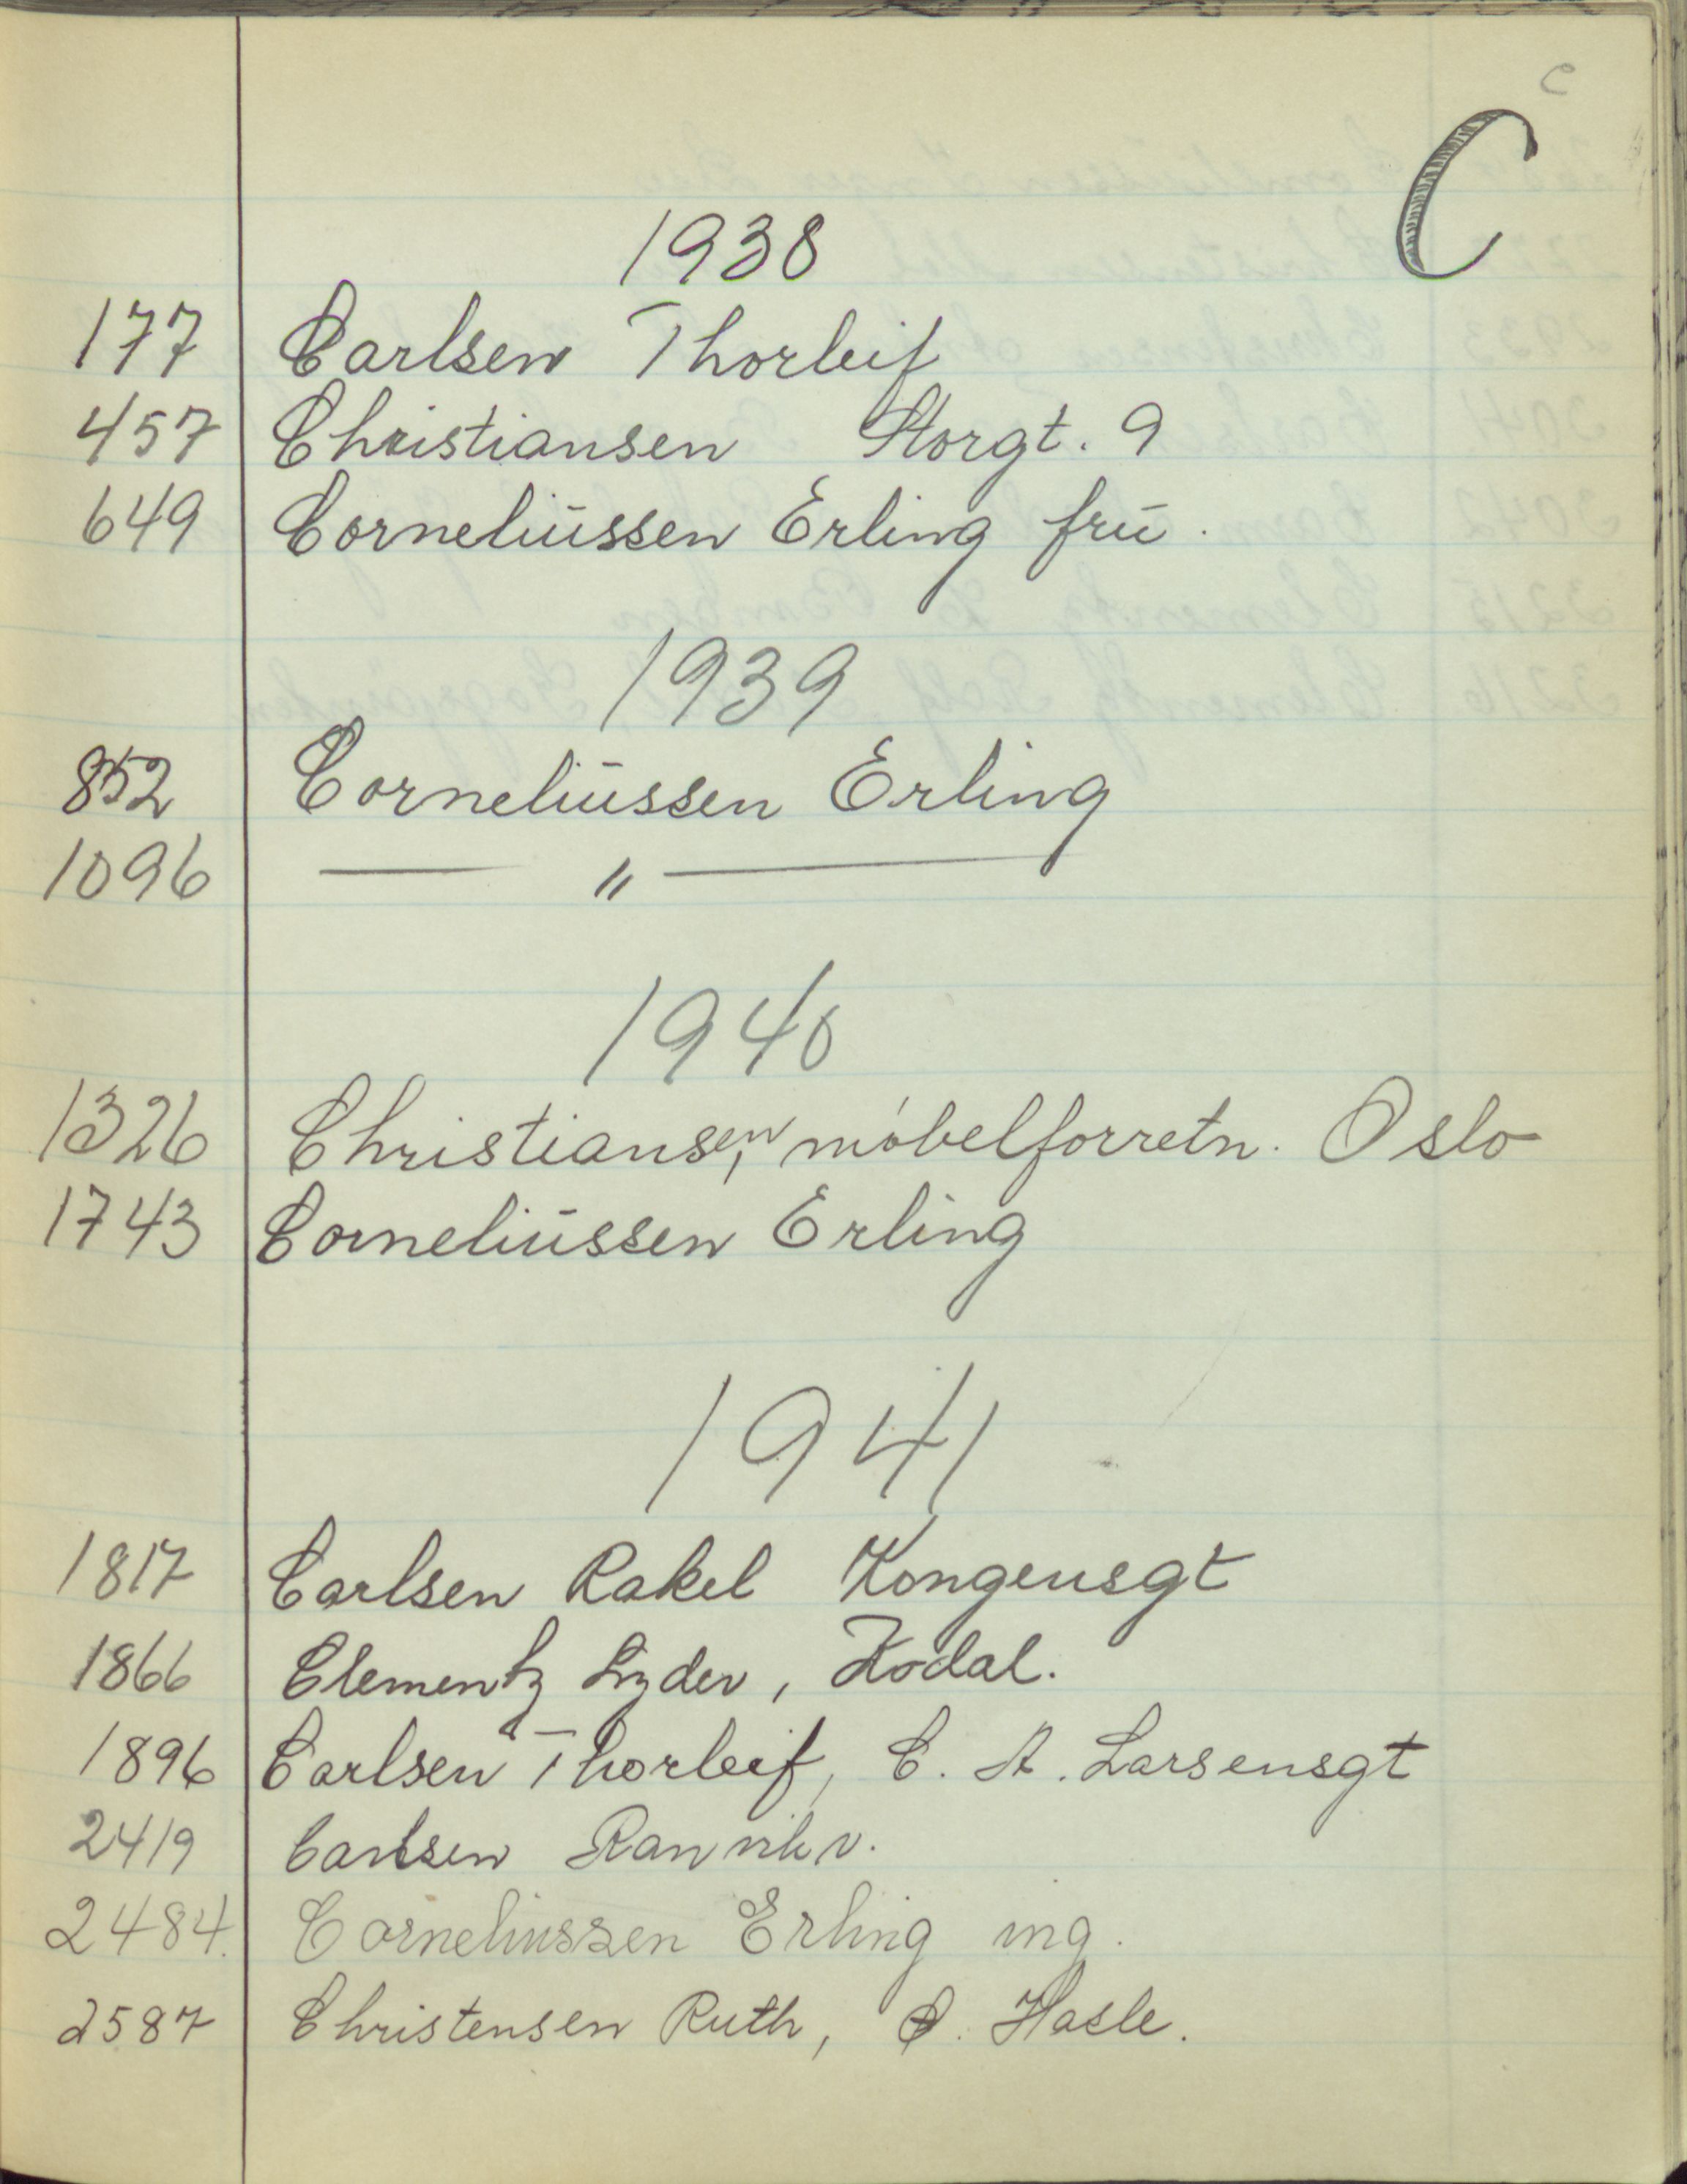 c
C
1938
177 Carlsen Thorleif
457 Christiansen Storgt. 9
649 Corneliussen Erling fru.
1939
852 Corneliussen Erling
1096 — " —
1940
1326 Christiansen, møbelforretn. Oslo
1743 Corneliussen Erling
1941
1817 Carlsen Rakel Kongensgt
1866 Clementz Lyder, Kodal.
1896 Carlsen Thorleif, C. A. Larsensgt
2419 Carlsen
2484. Corneliussen Erling ing.
2587 Christensen Ruth, Hasle.